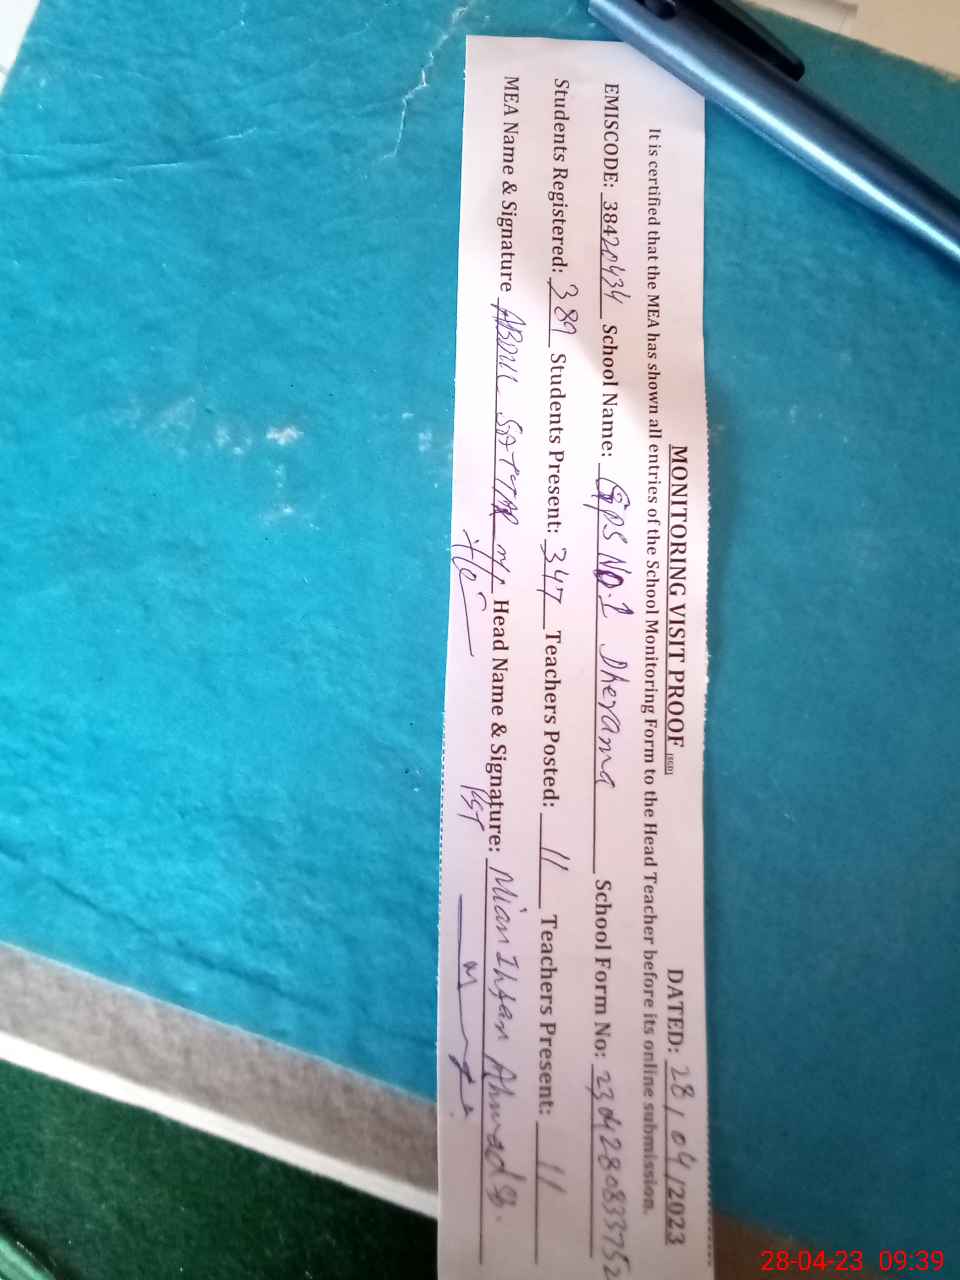 MONITORING VISIT PROOF [SED] DATED: 28/04/2023
It is certified that the MEA has shown all entries of the School Monitoring Form to the Head Teacher before its online submission.
EMISCODE: 38420434 School Name: GPS No.1 Dheyama School Form No: 230428083752
Students Registered: 389 Students Present: 347 Teachers Posted: 11 Teachers Present: 11
MEA Name & Signature ABDUL SATTAR Head Name & Signature: Mian Ihsan Ahmad
PST
28-04-23 09:39